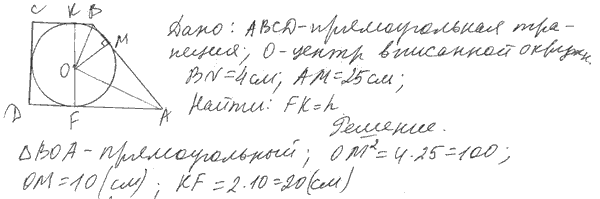 C K B
M
O
D F A
Дано: ABCD-прямоугольная тра-
пеция; O-центр вписанной окружн.
BN=4см; AM=25см;
Найти: FK=h
Решение.
△BOA-прямоугольный; OM²=4·25=100;
OM=10(см); KF=2·10=20(см)